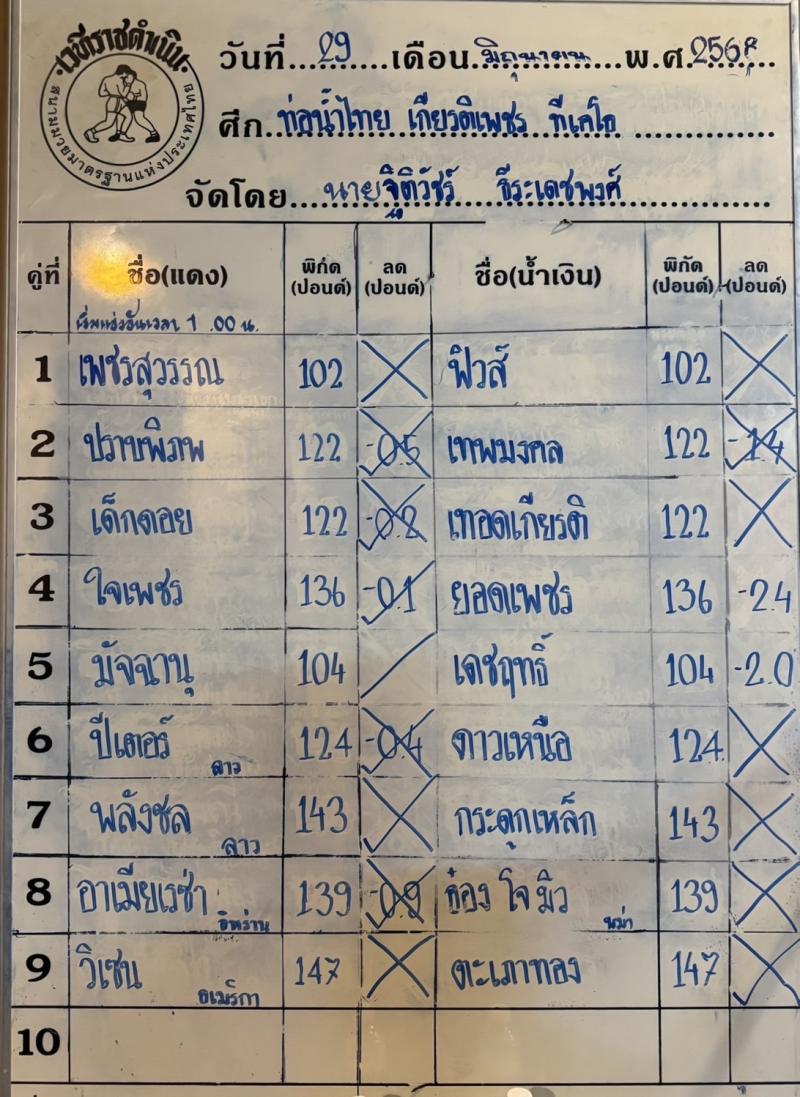 เวทีราชดำเนิน
สนามมวยมาตรฐานแห่งประเทศไทย
วันที่...29...เดือน...มิถุนายน...พ.ศ.2568...
ศึก...ท่อน้ำไทย เกียรติเพชร ทีเคโอ...
จัดโดย...นายจิติวัชร์ ธีระเดชพงศ์...
คู่ที่ ชื่อ(แดง) พิกัด (ปอนด์) ลด (ปอนด์) ชื่อ(น้ำเงิน) พิกัด (ปอนด์) ลด (ปอนด์)
1 .00 น.
1 เพชรสุวรรณ 102 ฟิวส์ 102
2 ปราบพิภพ 122 -0.5 เทพมงคล 122 -1.4
3 เด็กดอย 122 -0.2 เทอดเกียรติ 122
4 ใจเพชร 136 -0.1 ยอดเพชร 136 -2.4
5 มัจฉานุ 104 เดชฤทธิ์ 104 -2.0
6 ปีเตอร์ ลาว 124 -0.4 ดาวเหนือ 124
7 พลังชล ลาว 143 กระดูกเหล็ก 143
8 อาเมียเรซ่า อิหร่าน 139 -0.9 ก๋อง โจ มิว พม่า 139
9 วิเซน อเมริกา 147 ตะเภาทอง 147
10